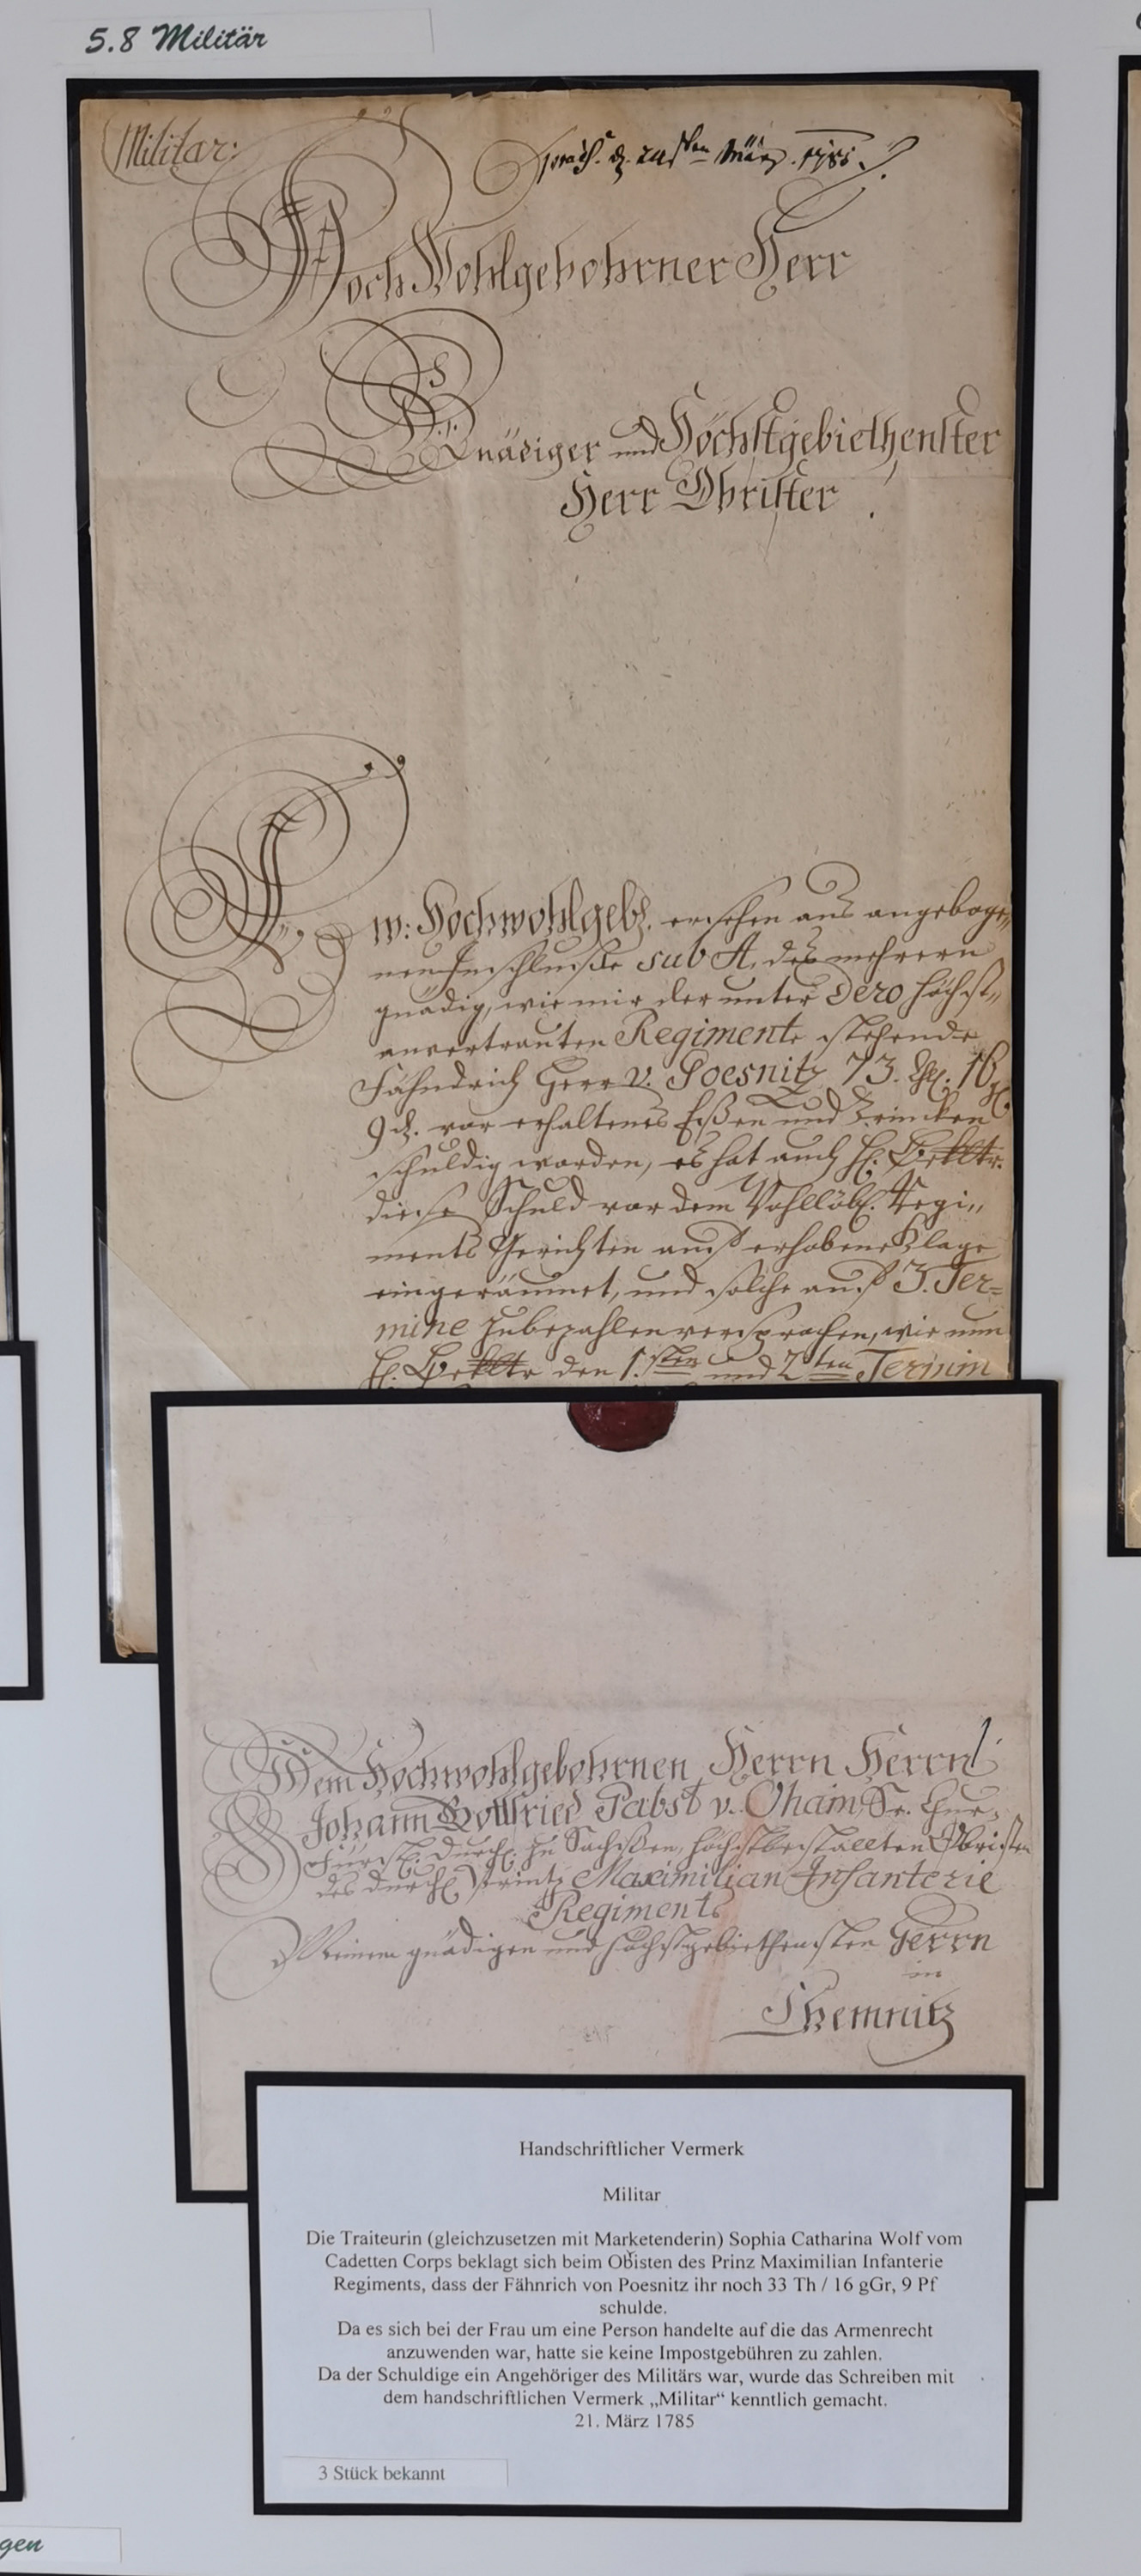 5.8 Militär
Militar:
März. 1785.
Hoch Wohlgebohrner Herr
Gnädiger und Höchstgebiethenster
Herr Obrister
Ew: Hochwohlgeb. ersehen aus angeboge„
nen Inschluße sub A, des mehrern
gnädig, wie mir der unter Dero höchst„
anvertrauten Regimente stehende
Fähndrich Herr v. Poesnitz 73. Thl. 16 gl.
9 d. vor erhaltenes Eßen und Trincken
schuldig worden, es hat auch H. Beklter.
diese Schuld vor dem Wohllöbl. Regi„
ments Gerichten auf erhobene Klage
eingeräumet, und solche auf 3. Ter=
mine zubezahlen versprochen, wie nun
H. Beklter den 1.sten und 2ten Termin
Dem Hochwohlgebohrnen Herrn Herrn
Johann Gottfried Pabst v. Ohain Sr. Chur„
Fürstl. Durchl. zu Sachßen, höchstbestallten Obristen
des Durchl. Printz Maximilian Infanterie
Regiments
Meinem gnädigen und höchstgebiethensten Herrn
in
Chemnitz
Handschriftlicher Vermerk
Militar
Die Traiteurin (gleichzusetzen mit Marketenderin) Sophia Catharina Wolf vom
Cadetten Corps beklagt sich beim Obisten des Prinz Maximilian Infanterie
Regiments, dass der Fähnrich von Poesnitz ihr noch 33 Th / 16 gGr, 9 Pf
schulde.
Da es sich bei der Frau um eine Person handelte auf die das Armenrecht
anzuwenden war, hatte sie keine Impostgebühren zu zahlen.
Da der Schuldige ein Angehöriger des Militärs war, wurde das Schreiben mit
dem handschriftlichen Vermerk „Militar“ kenntlich gemacht.
21. März 1785
3 Stück bekannt
gen